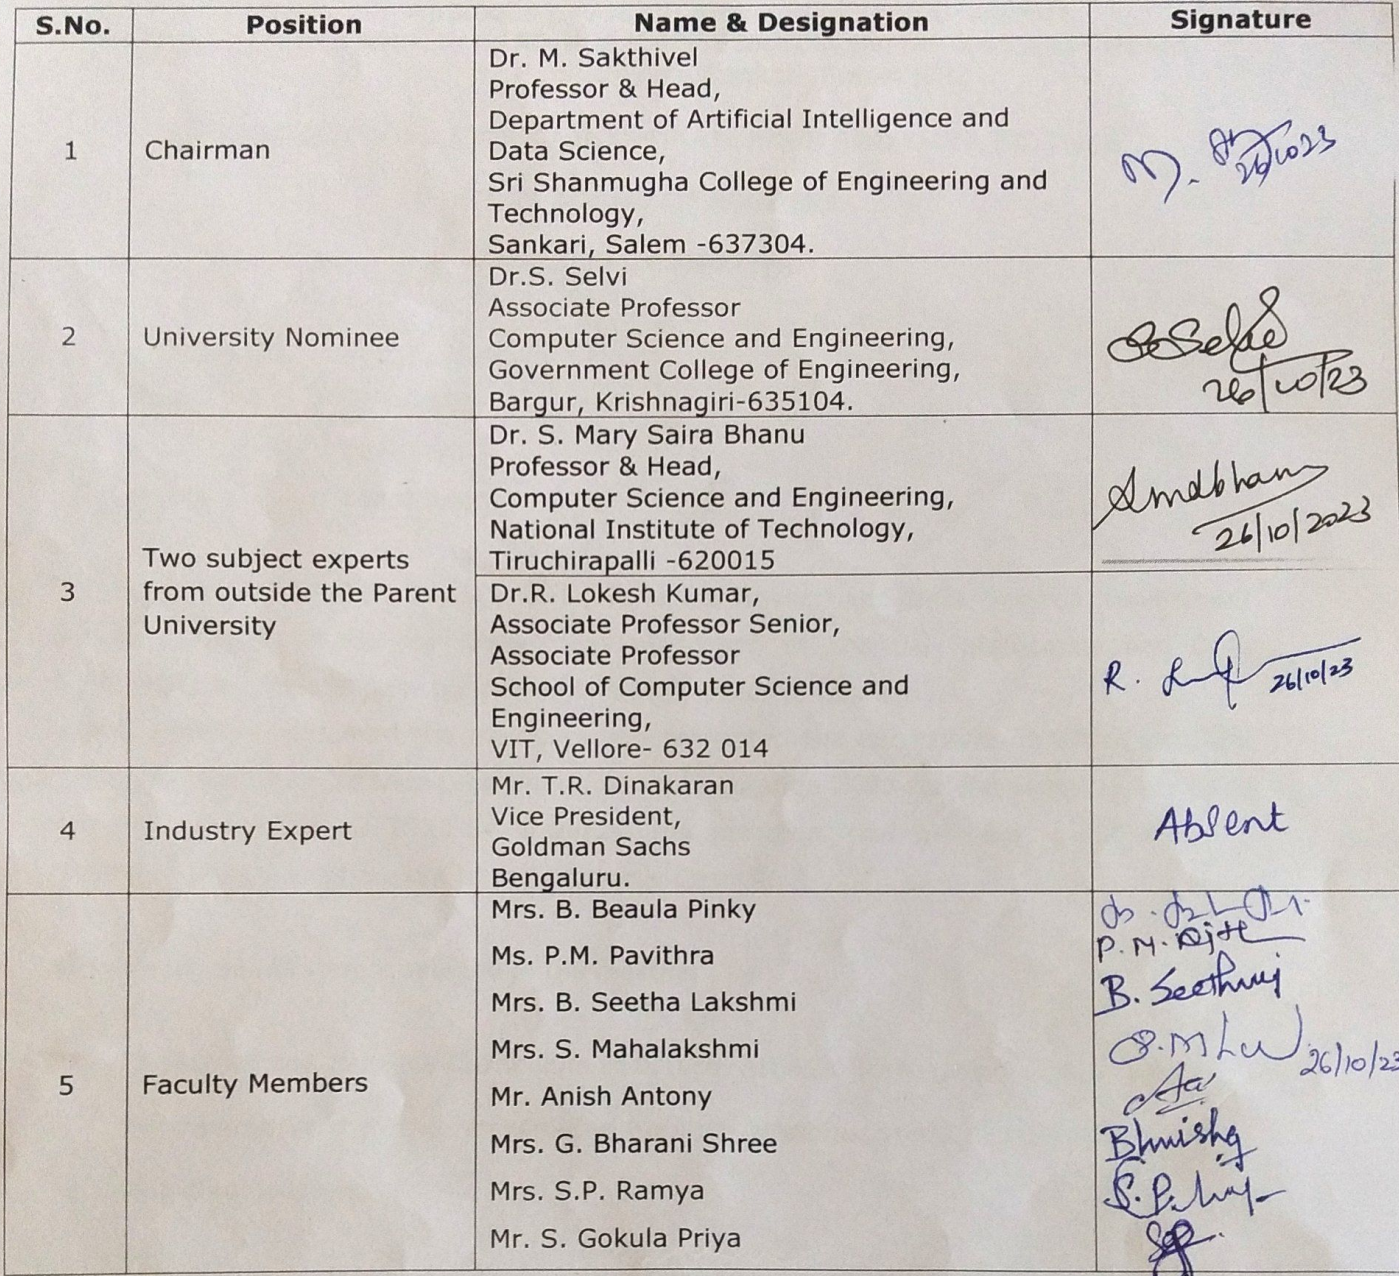 S.No. Position Name & Designation Signature
1 Chairman Dr. M. Sakthivel
Professor & Head,
Department of Artificial Intelligence and
Data Science,
Sri Shanmugha College of Engineering and
Technology,
Sankari, Salem -637304.
M. 26/10/23
2 University Nominee Dr.S. Selvi
Associate Professor
Computer Science and Engineering,
Government College of Engineering,
Bargur, Krishnagiri-635104.
26/10/23
3 Two subject experts
from outside the Parent
University
Dr. S. Mary Saira Bhanu
Professor & Head,
Computer Science and Engineering,
National Institute of Technology,
Tiruchirapalli -620015
26/10/2023
Dr.R. Lokesh Kumar,
Associate Professor Senior,
Associate Professor
School of Computer Science and
Engineering,
VIT, Vellore- 632 014
R. 26/10/23
4 Industry Expert Mr. T.R. Dinakaran
Vice President,
Goldman Sachs
Bengaluru.
Absent
5 Faculty Members
Mrs. B. Beaula Pinky
Ms. P.M. Pavithra P.M.
Mrs. B. Seetha Lakshmi B.
Mrs. S. Mahalakshmi 26/10/23
Mr. Anish Antony
Mrs. G. Bharani Shree
Mrs. S.P. Ramya S.P.
Mr. S. Gokula Priya